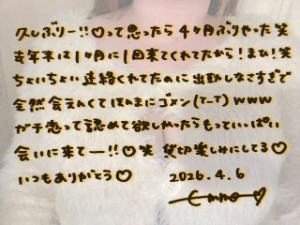 久しぶりー!!♡って思ったら4ヶ月ぶりやった笑
去年末は1ヶ月に1回来てくれてたから!まひ!笑
ちょいちょい連絡くれてたのに出勤しなさすぎで
全然会えんくてほんまにゴメン(T-T)www
ガチ恋って認めて欲しかったらもっといっぱい
会いに来てー!!♡笑 貸切楽しみにしてる♡
いつもありがとう♡ 2026.4.6